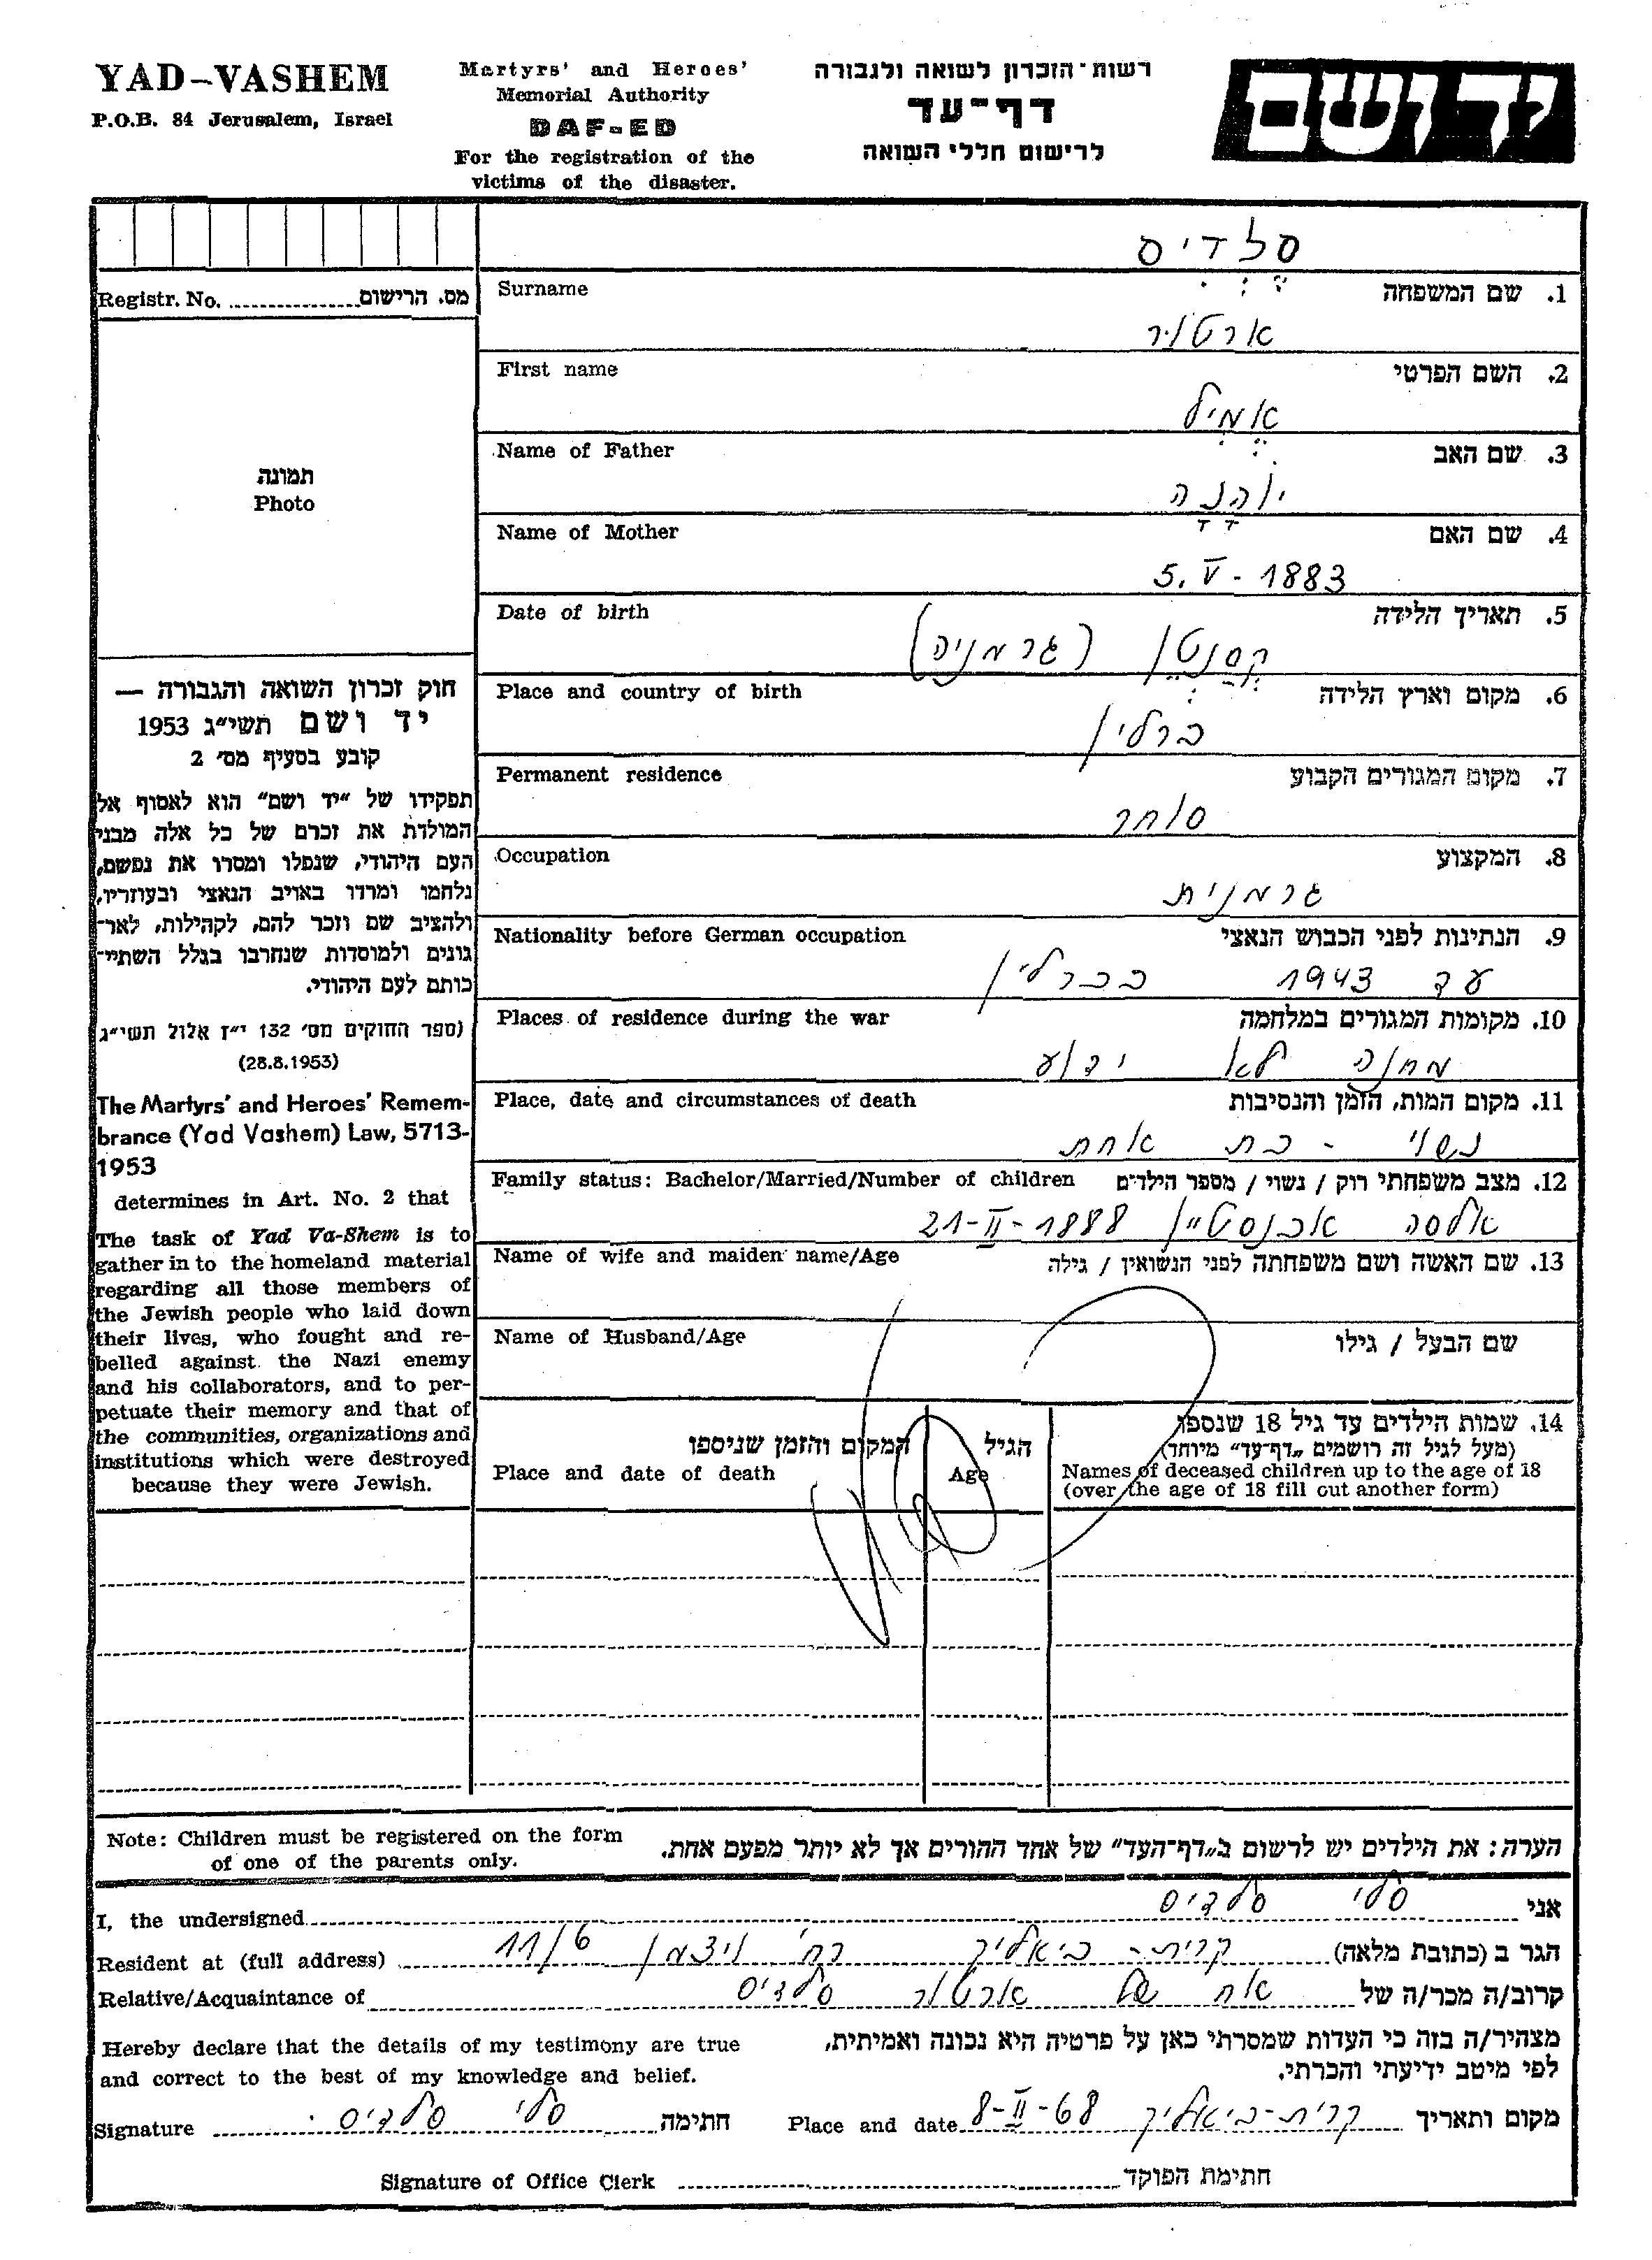 YAD-VASHEM
P.O.B. 84 Jerusalem, Israel
Martyrs' and Heroes'
Memorial Authority
DAF-ED
For the registration of the
victims of the disaster.
רשות-הזכרון לשואה ולגבורה
דף-עד
לרישום חללי השואה
יד ושם
Registr. No. מס. הרישום
תמונה
Photo
חוק זכרון השואה והגבורה —
יד ושם תשי״ג 1953
קובע בסעיף מס׳ 2
תפקידו של ״יד ושם״ הוא לאסוף אל
המולדת את זכרם של כל אלה מבני
העם היהודי, שנפלו ומסרו את נפשם,
נלחמו ומרדו באויב הנאצי ובעוזריו,
ולהציב שם וזכר להם, לקהילות, לאר-
גונים ולמוסדות שנחרבו בגלל השתיי-
כותם לעם היהודי.
(ספר החוקים מס׳ 132 י״ז אלול תשי״ג
(28.8.1953)
The Martyrs' and Heroes' Remem-
brance (Yad Vashem) Law, 5713-
1953
determines in Art. No. 2 that
The task of Yad Va-Shem is to
gather in to the homeland material
regarding all those members of
the Jewish people who laid down
their lives, who fought and re-
belled against the Nazi enemy
and his collaborators, and to per-
petuate their memory and that of
the communities, organizations and
institutions which were destroyed
because they were Jewish.
סלדיס
Surname 1. שם המשפחה
ארטור
First name 2. השם הפרטי
אמיל
Name of Father 3. שם האב
יוהנה
Name of Mother 4. שם האם
5. V - 1883
Date of birth 5. תאריך הלידה
קסנטן (גרמניה)
Place and country of birth 6. מקום וארץ הלידה
ברלין
Permanent residence 7. מקום המגורים הקבוע
סוחר
Occupation 8. המקצוע
גרמנית
Nationality before German occupation 9. הנתינות לפני הכבוש הנאצי
עד 1943 בברלין
Places of residence during the war 10. מקומות המגורים במלחמה
מחנה לא ידוע
Place, date and circumstances of death 11. מקום המות, הזמן והנסיבות
נשוי - בת אחת
Family status: Bachelor/Married/Number of children 12. מצב משפחתי רוק / נשוי / מספר הילדים
אלסה אבנסטיין 21-II-1888
Name of wife and maiden name/Age 13. שם האשה ושם משפחתה לפני הנשואין / גילה
Name of Husband/Age שם הבעל / גילו
14. שמות הילדים עד גיל 18 שנספו
(מעל לגיל זה רושמים ״דף-עד״ מיוחד)
Names of deceased children up to the age of 18
(over the age of 18 fill out another form)
הגיל
Age
המקום והזמן שניספו
Place and date of death
Note: Children must be registered on the form
of one of the parents only.
הערה: את הילדים יש לרשום ב״דף-העד״ של אחד ההורים אך לא יותר מפעם אחת.
I, the undersigned סלי סלדיס אני
Resident at (full address) קרית-ביאליק רח׳ ויצמן 11/6 הגר ב (כתובת מלאה)
Relative/Acquaintance of אח של ארטור סלדיס קרוב/ה מכר/ה של
Hereby declare that the details of my testimony are true
and correct to the best of my knowledge and belief.
מצהיר/ה בזה כי העדות שמסרתי כאן על פרטיה היא נכונה ואמיתית,
לפי מיטב ידיעתי והכרתי.
Signature סלי סלדיס חתימה Place and date 8-II-68 קרית-ביאליק מקום ותאריך
Signature of Office Clerk חתימת הפוקד